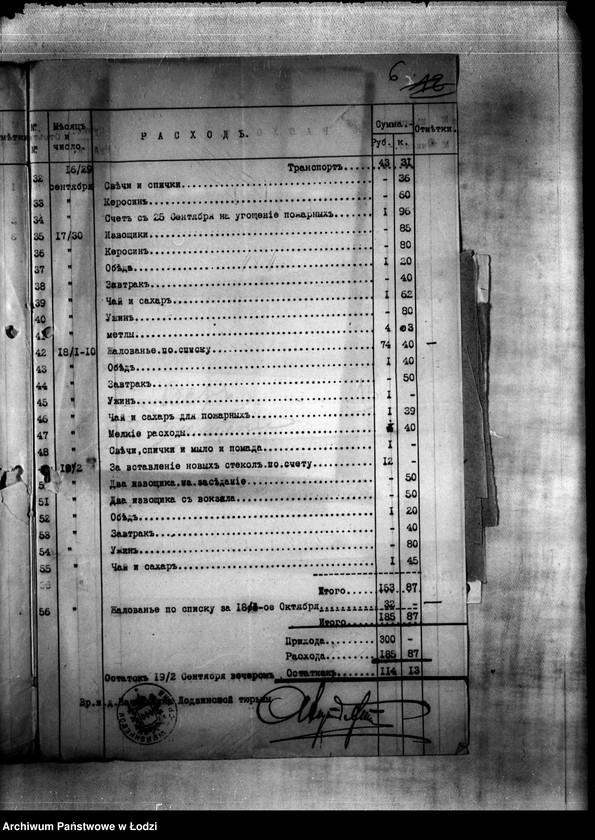 6 12
№ № Мѣсяцъ и число. РАСХОДЪ. Сумма. Отмѣтки.
Руб. к.
16/29 Транспортъ... 43 31
32 сентября Свѣчи и спички... - 36
33 " Керосинъ... - 60
34 " Счетъ съ 25 Сентября на угощеніе пожарныхъ... I 96
35 17/30 Извощики... - 85
36 " Керосинъ... - 80
37 " Обѣдъ... I 20
38 " Завтракъ... - 40
39 " Чай и сахаръ... I 62
40 " Ужинъ... - 80
41 " метлы... 4 03
42 18/I-10 Жалованье.по.списку... 74 40 —
43 " Обѣдъ... I 40
44 " Завтракъ... - 50
45 " Ужинъ... I -
46 " Чай и сахаръ для пожарныхъ... I 39
47 " Мелкіе расходы... 40
48 " Свѣчи,спички и мыло и помада... I -
19/2 За вставленіе новыхъ стеколъ.по.счету... 12 -
" Два извощика.на.засѣданіе... - 50
51 " Два извощика съ вокзала... - 50
52 " Обѣдъ... I 20
53 " Завтракъ... - 40
54 " Ужинъ... - 80
55 " Чай и сахаръ... I 45
Итого... 153 87
56 " Жалованье по списку за 18-ое Октября... 32 - —
Итого... 185 87
Прихода... 300 -
Расхода... 185 87
Остатокъ 19/2 Сентября вечеромъ Остатокъ... 114 13
Вр.и.д. Лодзинской тюрьмы
Archiwum Państwowe w Łodzi